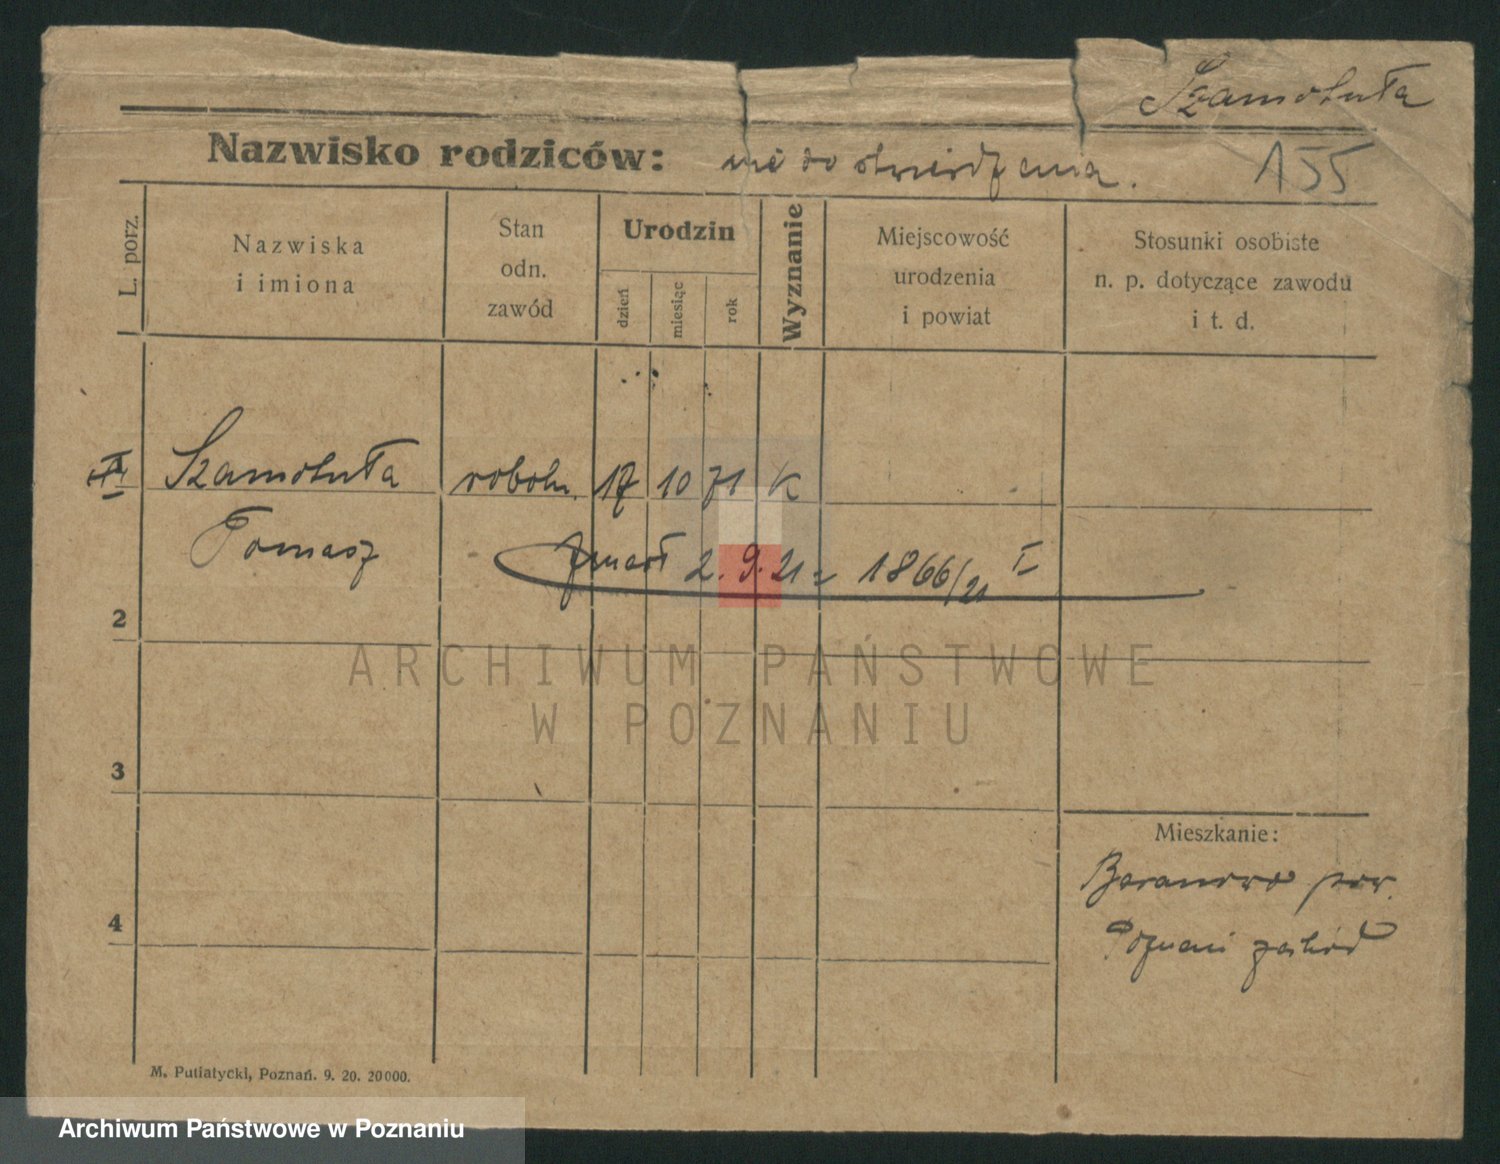 Szamotuła
Nazwisko rodziców: nie do stwierdzenia.
155
L. porz.
Nazwiska
i imiona
Stan
odn.
zawód
Urodzin
dzień
miesiąc
rok
Wyznanie
Miejscowość
urodzenia
i powiat
Stosunki osobiste
n. p. dotyczące zawodu
i t. d.
Szamotuła robotn. 17 10 71 K
Tomasz
zmarł 2. 9. 21 = 1866/21 I
2
3
4
ARCHIWUM PAŃSTWOWE
W POZNANIU
Mieszkanie:
Baranowo pow.
Poznań zachód
M. Putiatycki, Poznań. 9. 20. 20000.
Archiwum Państwowe w Poznaniu